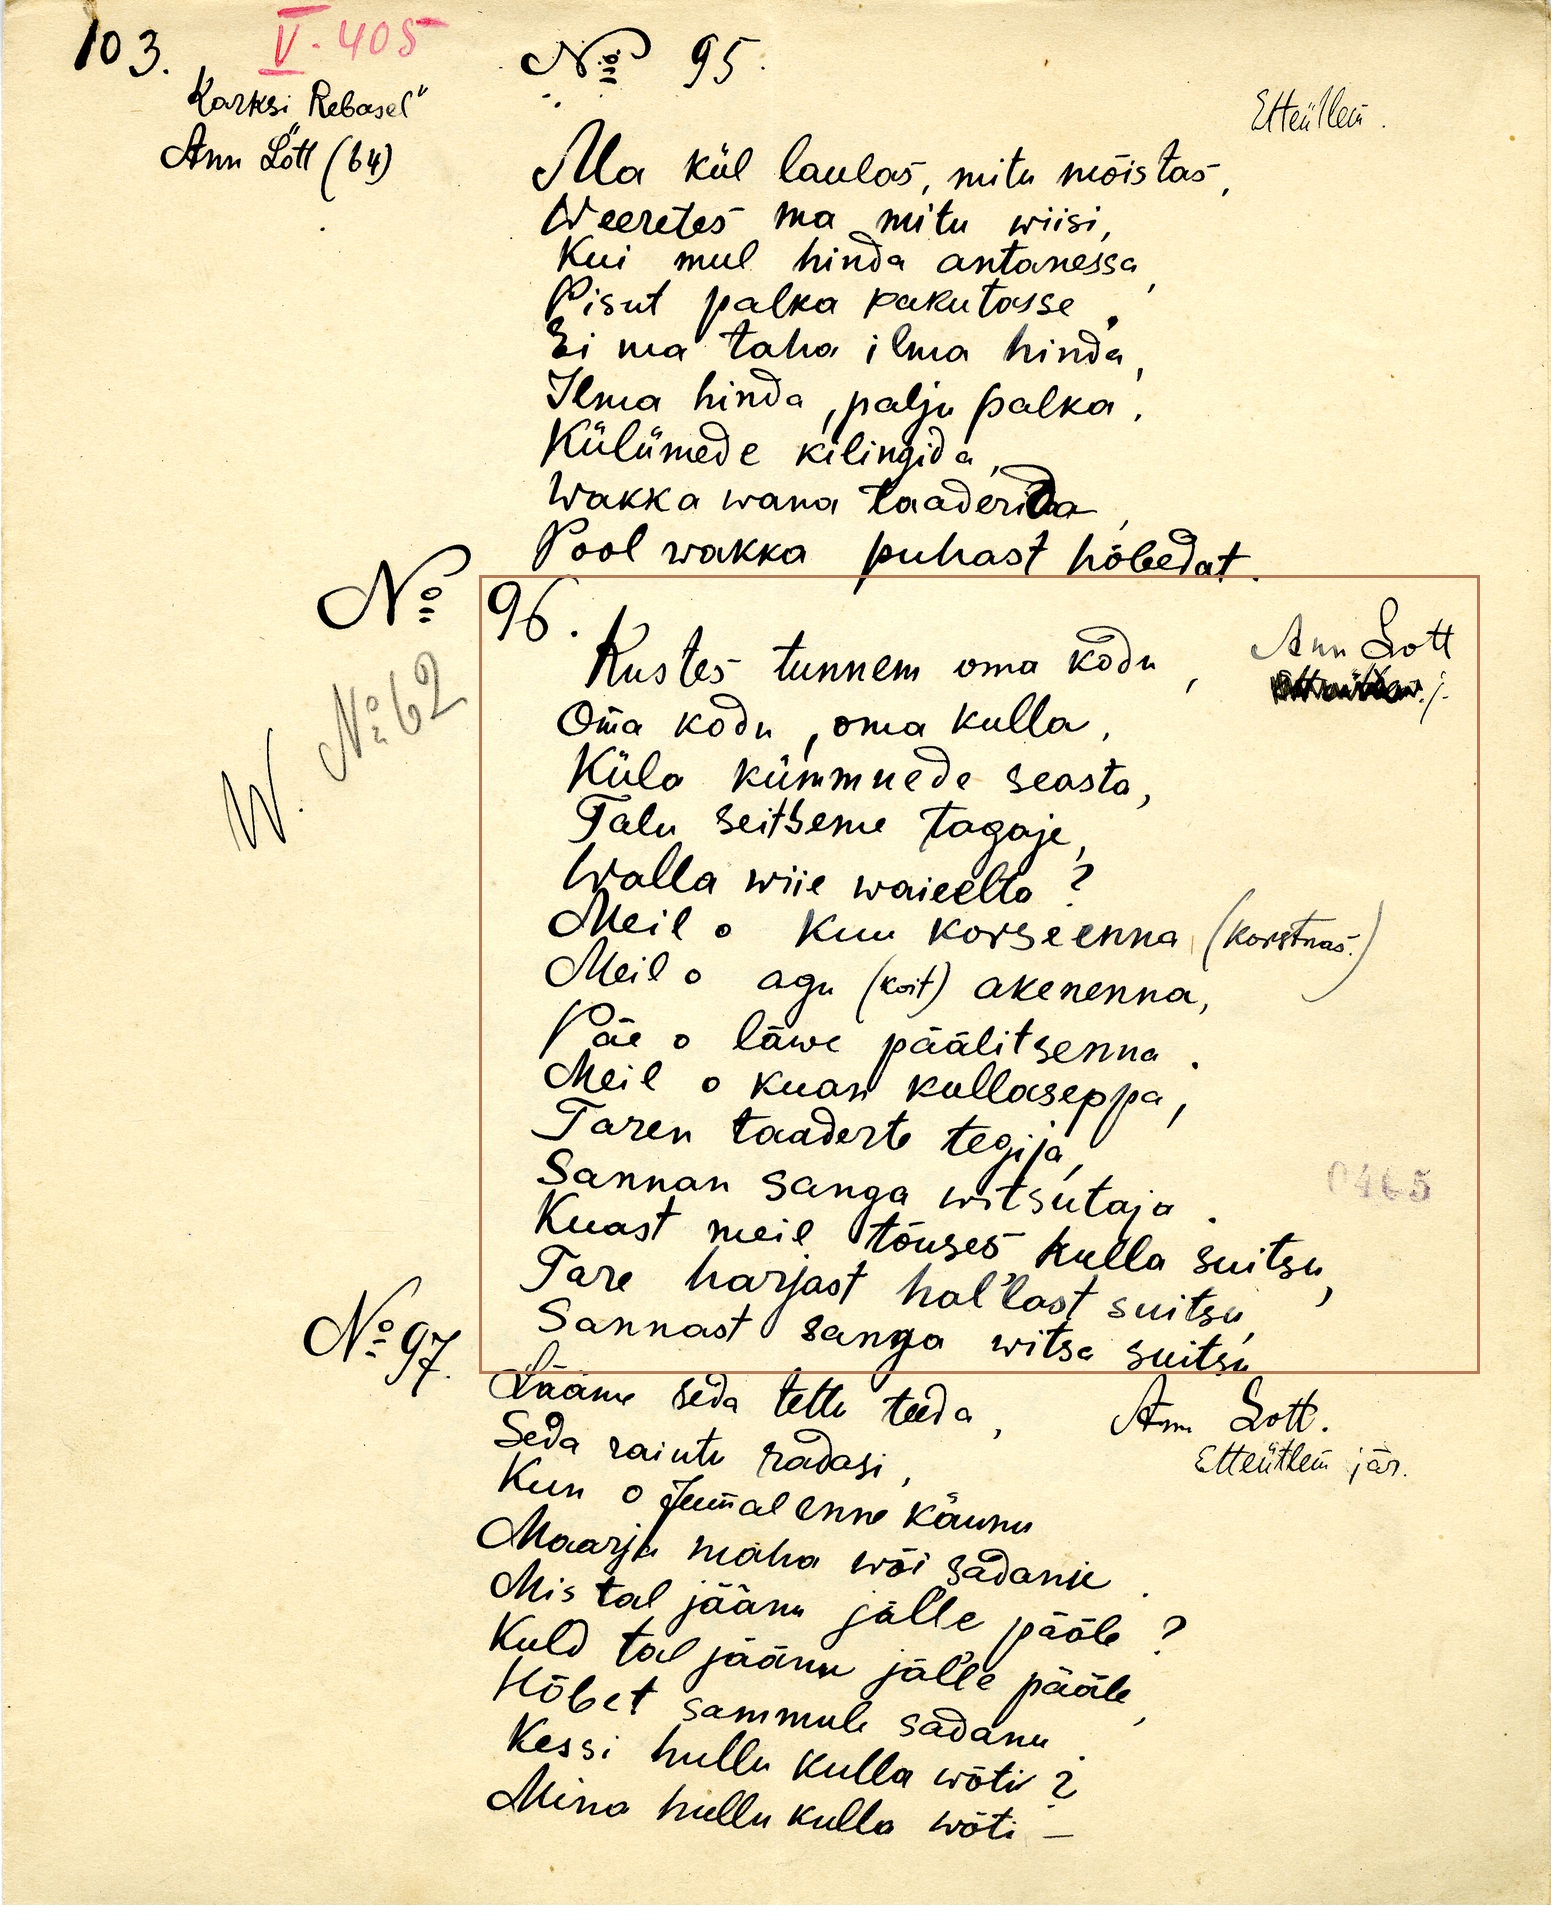 103. V. 405 No 95.
Karksi Rebasel"
Etteütlem.
Ann Lott (64)
Ma kül laulas, mitu mõistas,
Weeretes ma mitu wiisi,
Kui mul hinda antanessa,
Pisut palka pakutasse.
Ei ma taha ilma hinda,
Ilma hinda, palju palka.
Külümede kilingida,
Wakka wana taaderida,
Pool wakka puhast hõbedat.
No 96.
Ann Lott
Kustes tunnem oma kodu,
Oma kodu, oma kulla,
W. No 62
Küla kümmnede seasta,
Talu seitseme tagaje,
Walla wiie waieelta?
Meil o kuu korseenna (korstnas.)
Meil o agu (koit) akenenna,
Päe o läwe päälitsenna.
Meil o kuan kullaseppa,
Taren taaderte tegija,
Sannan sanga witsutaja.
0465
Kuast meil tõuses kulla suitsu,
Tare harjast hal'last suitsu,
Sannast sanga witsa suitsu
No 97.
Lääme seda tettu teeda,
Ann Lott.
Seda raiutu radasi,
Etteütlem jär.
Kun o Jumal enne käunu
Maarja maha wõi sadanu.
Mis tal jäänu jälle pääle?
Kuld tal jäänu jälle pääle,
Hõbet sammule sadanu
Kessi hullu kulla wõti?
Mina hullu kulla wõti –